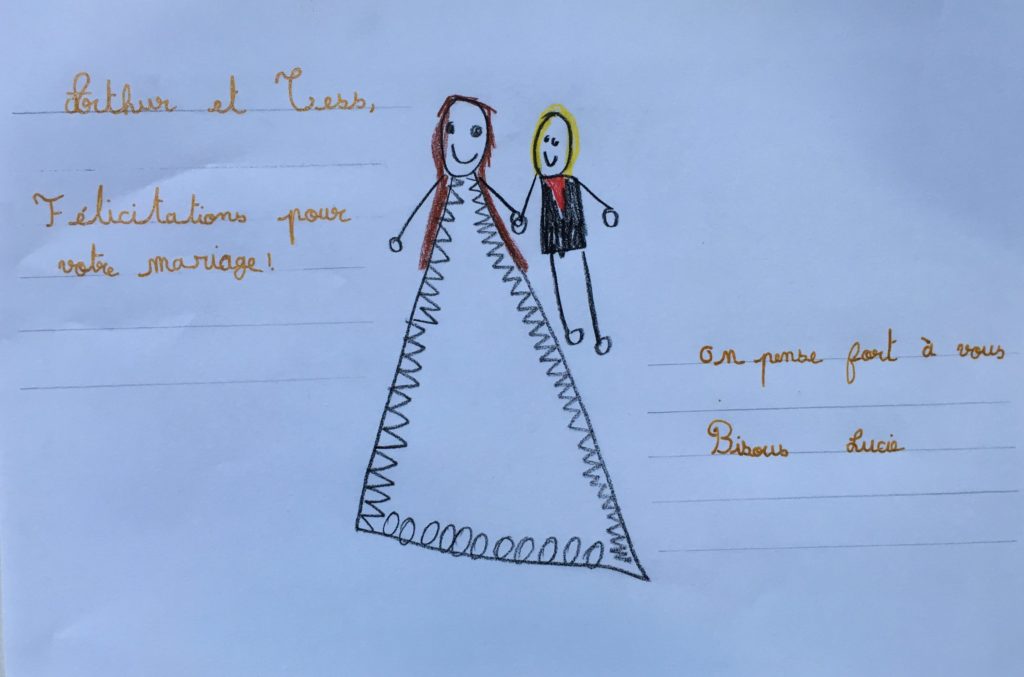 Arthur et Tess,
Félicitations pour
votre mariage!
on pense fort à vous
Bisous Lucie